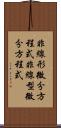 非線形微分方
程式非線型微
分方程式